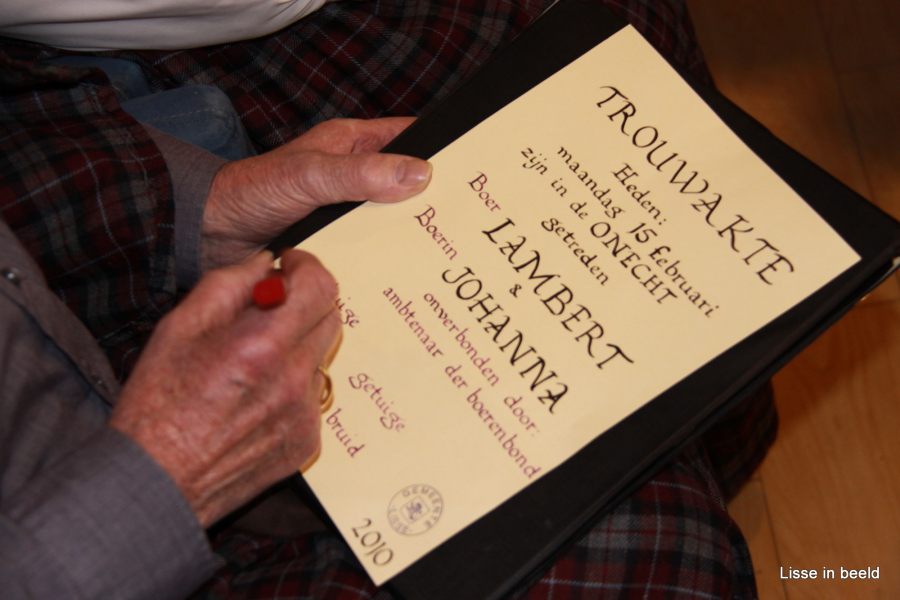 TROUWAKTE
Heden:
maandag 15 februari
zijn in de ONECHT
getreden
Boer LAMBERT
&
Boerin JOHANNA
onverbonden door:
ambtenaar der boerenbond
getuige
bruid
GEMEENTE
LISSE
2010
Lisse in beeld